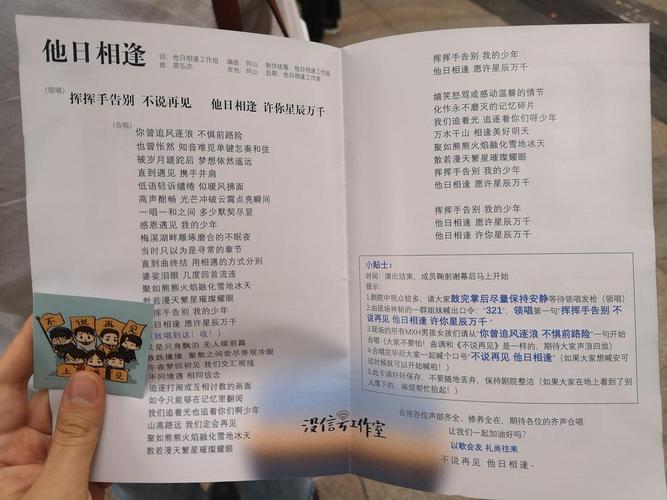 他日相逢
词：他日相逢工作组 编曲：何山 制作统筹：他日相逢工作组
曲：简弘亦 吉他：何山 后期：他日相逢工作室
（领唱）
挥挥手告别 不说再见 他日相逢 许你星辰万千
（合唱）
你曾追风逐浪 不惧前路险
也曾怅然 知音难觅单键怎奏和弦
被岁月蹉跎后 梦想依然遥远
直到遇见 携手并肩
低语轻诉缱绻 似暖风拂面
高声酣畅 光芒冲破云霄点亮瞬间
一唱一和之间 多少默契尽显
感恩遇见 我的少年
梅溪湖畔雕琢磨合的不眠夜
当时只以为是寻常的章节
直到曲终结 用相遇的方式分别
婆娑泪眼 几度回首流连
聚如熊熊火焰融化雪地冰天
散若漫天繁星璀璨耀眼
挥手告别 我的少年
日相逢 愿许星辰万千
就唱到这！收！）
又是只身飘泊 无人续前篇
跌跌撞撞 聚散之间尝尽旁观冷眼
午夜梦回初见 我们交汇视线
不同境遇 相同信念
追逐打闹或互相讨教的画面
如今只能够在记忆里翻阅
我们追着光也追着你们啊少年
山高路远 我们定会再见
聚如熊熊火焰融化雪地冰天
散若漫天繁星璀璨耀眼
不说再见
上见
挥挥手告别 我的少年
他日相逢 愿许星辰万千
嬉笑怒骂或感动温馨的情节
化作永不磨灭的记忆碎片
我们追着光 追逐着你们呀少年
万水千山 相逢美好明天
聚如熊熊火焰融化雪地冰天
散若漫天繁星璀璨耀眼
挥挥手告别 我的少年
他日相逢 愿许星辰万千
挥挥手告别 我的少年
他日相逢 愿许星辰万千
他日相逢 许你星辰万千
小贴士：
时间：演出结束，成员鞠躬谢幕后马上开始
提示：
1.剧院中观众较多，请大家鼓完掌后尽量保持安静等待领唱发枪（领唱）
2.由现场神秘的一群姐妹喊出口令："321"，领唱第一句"挥挥手告别 不
说再见 他日相逢 许你星辰万千"
3.现场的所有MXH男孩女孩们请从"你曾追风逐浪 不惧前路险"一句开始
合唱（大家不要怕！曲调和《不说再见》是一样的，期待大家声浪四放）
4.合唱完毕后大家一起喊个口号"不说再见 他日相逢"（如果大家想喊安可
这时候就可以开始喊啦！）
5.此卡请好好保存，不要随地丢弃，保持剧院整洁（如果大家在地上看到了别
人落下的，麻烦帮忙拾起！）
在座各位声部齐全、修养全在，期待各位的齐声合唱
让我们一起加油好吗？
以歌会友 礼尚往来
不说再见 他日相逢~
没信万工作室